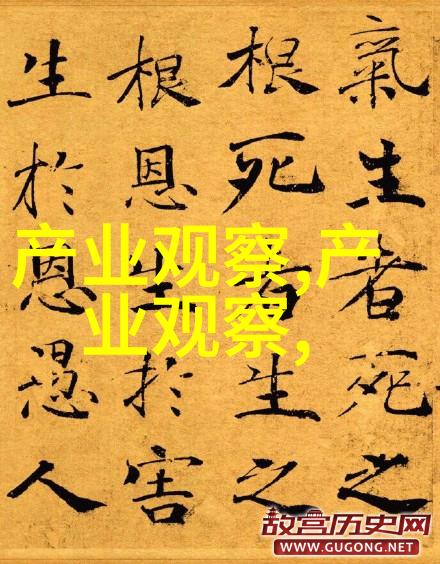 氣生者死之
根死者生之
根恩生於害
生於恩愚人
产业观察,产
业观察,
故宫历史网
WWW.GUGONG.NET